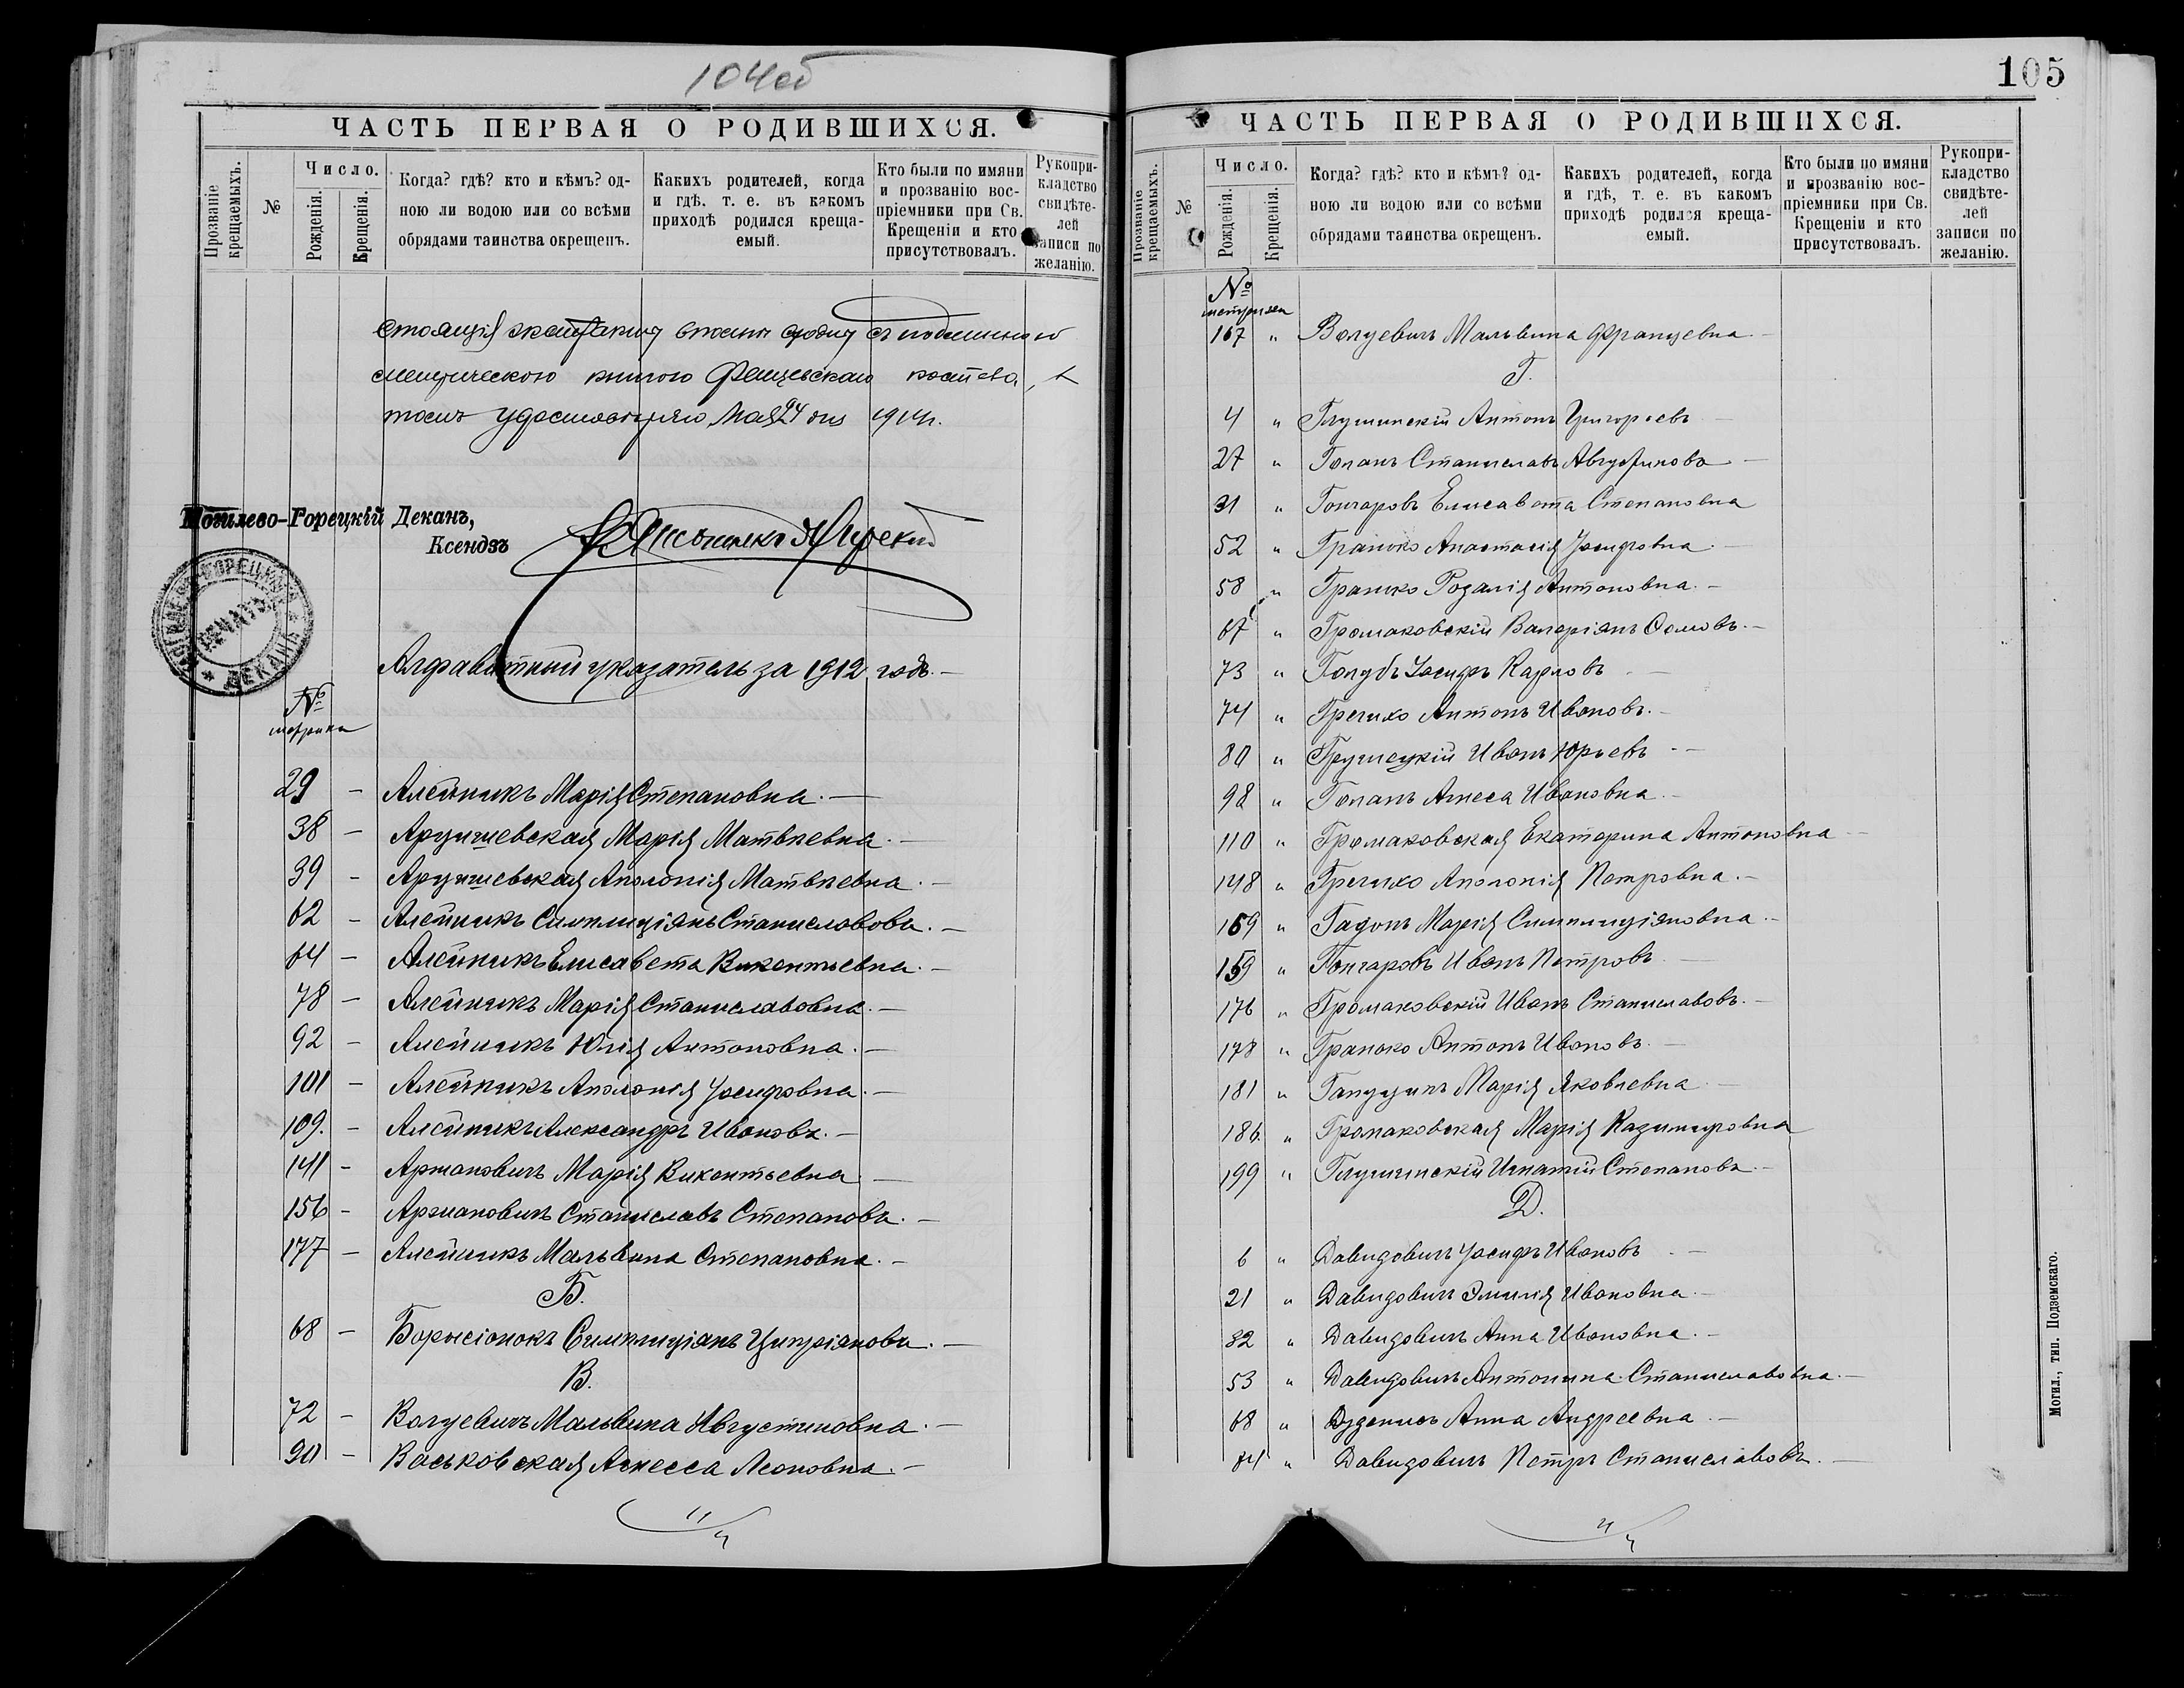 104об
ЧАСТЬ ПЕРВАЯ О РОДИВШИХСЯ.
Прозваніе крещаемыхъ.
№
Число.
Рожденія.
Крещенія.
Когда? гдѣ? кто и кѣмъ? од-
ною ли водою или со всѣми
обрядами таинства окрещенъ.
Какихъ родителей, когда
и гдѣ, т. е. въ какомъ
приходѣ родился креща-
емый.
Кто были по имяни
и прозванію вос-
пріемники при Св.
Крещеніи и кто
присутствовалъ.
Рукопри-
кладство
свидѣте-
лей
записи по
желанію.
съ подлинною
метрическою книгою костела, в
томъ удостовѣряю Мая 24 дня 1914 г.
Могилево-Горецкій Деканъ,
Ксендзъ
ПЕЧАТЬ
ДЕКАНА
Алфавитный указатель за 1912 годъ. —
№
метрики
29 — Алейникъ Марія Степановна. —
38 — Арцишевская Марія Матвѣевна. —
39 — Арцишевская Аполонія Матвѣевна. —
62 — Алейникъ Симплиціянъ Станиславовъ. —
64 — Алейникъ Елисавета Викентьевна. —
78 — Алейникъ Марія Станиславовна. —
92 — Алейникъ Юлія Антоновна. —
101 — Алейникъ Аполонія Іосифовна. —
109. — Алейникъ Александръ Ивановъ. —
141 — Армановичъ Марія Викентьевна —
156 — Армановичъ Станиславъ Степановъ. —
177 — Алейникъ Мальвина Степановна. —
Б.
68 — Борысіонокъ Симплиціянъ Ципріяновъ. —
В.
72 — Валуевичъ Мальвина Августиновна. —
90 — Васьковская Агнесса Леоновна. —
105
ЧАСТЬ ПЕРВАЯ О РОДИВШИХСЯ.
Прозваніе крещаемыхъ.
№
Число.
Рожденія.
Крещенія.
Когда? гдѣ? кто и кѣмъ? од-
ною ли водою или со всѣми
обрядами таинства окрещенъ.
Какихъ родителей, когда
и гдѣ, т. е. въ какомъ
приходѣ родился креща-
емый.
Кто были по имяни
и прозванію вос-
пріемники при Св.
Крещеніи и кто
присутствовалъ.
Рукопри-
кладство
свидѣте-
лей
записи по
желанію.
№
метрики
167 " Валуевичъ Мальвина Францевна —
Г.
4 " Глушинскій Антонъ Григорьевъ —
27 " Гопанъ Станиславъ Августиновъ —
31 " Гончаровъ Елисавета Степановна
52 " Гранько Анастасія Іосифовна. —
58 " Гранько Розалія Антоновна. —
67 " Громаковскій Валеріянъ Осиповъ. —
73 " Голубъ Іосифъ Карловъ —
74 " Гречихо Антонъ Ивановъ. —
80 " Грушецкій Иванъ Юрьевъ —
98 " Гопанъ Агнеса Ивановна. —
110 " Громаковская Екатерина Антоновна —
148 " Гречихо Аполонія Петровна. —
159 " Гадонъ Марія Симплиціяновна —
159 " Гончаровъ Иванъ Петровъ —
176 " Громаковскій Иванъ Станиславовъ. —
178 " Гранько Антонъ Ивановъ. —
181 " Марія Яковлевна —
186. " Громаковская Марія Казимировна
199 " Глушинскій Игнатій Степановъ —
Д.
6 " Давидовичъ Іосифъ Ивановъ —
21 " Давидовичъ Эмилія Ивановна —
32 " Давидовичъ Анна Ивановна. —
53 " Давидовичъ Антонина Станиславовна. —
68 " Анна Андреевна —
74 " Давидовичъ Петръ Станиславовъ. —
Могил., тип. Подземскаго.